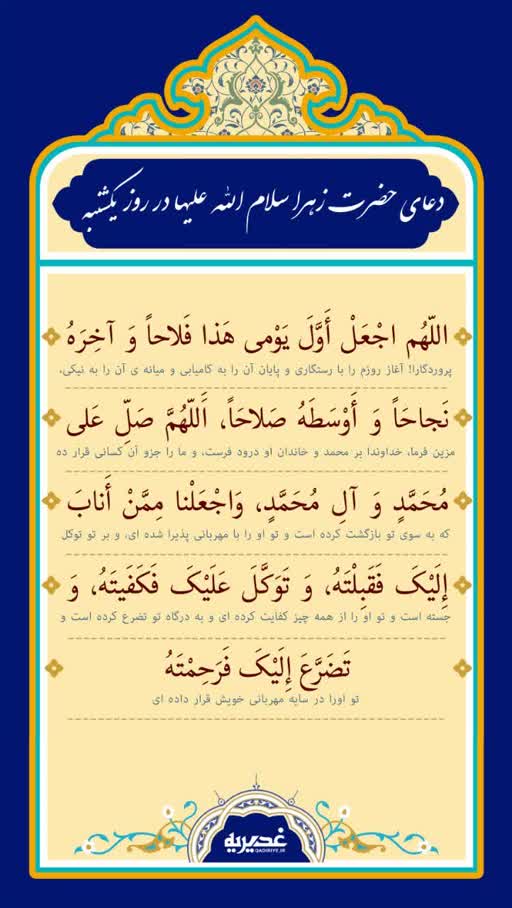 دعای حضرت زهرا سلام الله علیها در روز یکشنبه
اللّهُم اجْعَلْ أَوَّلَ یَوْمی هَذا فَلاحاً وَ آخِرَهُ
پروردگارا! آغاز روزم را با رستگاری و پایان آن را به کامیابی و میانه ی آن را به نیکی،
نَجاحَاً وَ أَوْسَطَهُ صَلاحَاً، اَللّهُمَّ صَلِّ عَلی
مزین فرما، خداوندا بر محمد و خاندان او درود فرست، و ما را جزو آن کسانی قرار ده
مُحَمَّدٍ وَ آلِ مُحَمَّدٍ، وَاجْعَلْنا مِمَّنْ أَنابَ
که به سوی تو بازگشت کرده است و تو او را با مهربانی پذیرا شده ای، و بر تو توکل
إِلَیْکَ فَقَبِلْتَهُ، وَ تَوَکَّلَ عَلَیْکَ فَکَفَیتَهُ، وَ
جسته است و تو او را از همه چیز کفایت کرده ای و به درگاه تو تضرع کرده است و
تَضَرَّعَ إِلَیْکَ فَرَحِمْتَهُ
تو اورا در سایه مهربانی خویش قرار داده ای
غدیریه
QADIRIYE.IR